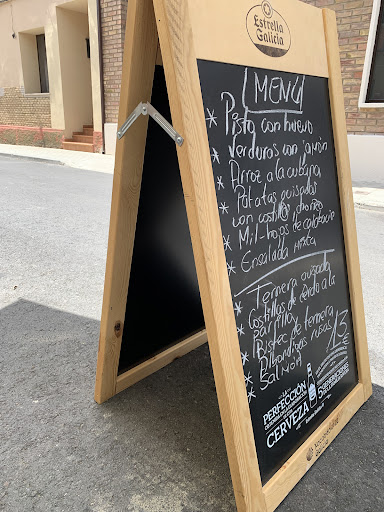 Estrella
Galicia
MENÚ
* Pisto con huevo
* Verduras con jamón
* Arroz a la cubana
* Patatas guisadas
con costillas y chorizo
* Mil-hojas de calabacín
* Ensalada Mixta
* Ternera guisada
* Costillas de cerdo a la
parrilla
* Bistec de ternera
* Albondigas rusas
* Salmón
13€
LA
PERFECCIÓN
CERVEZA
5 GENERACIONES